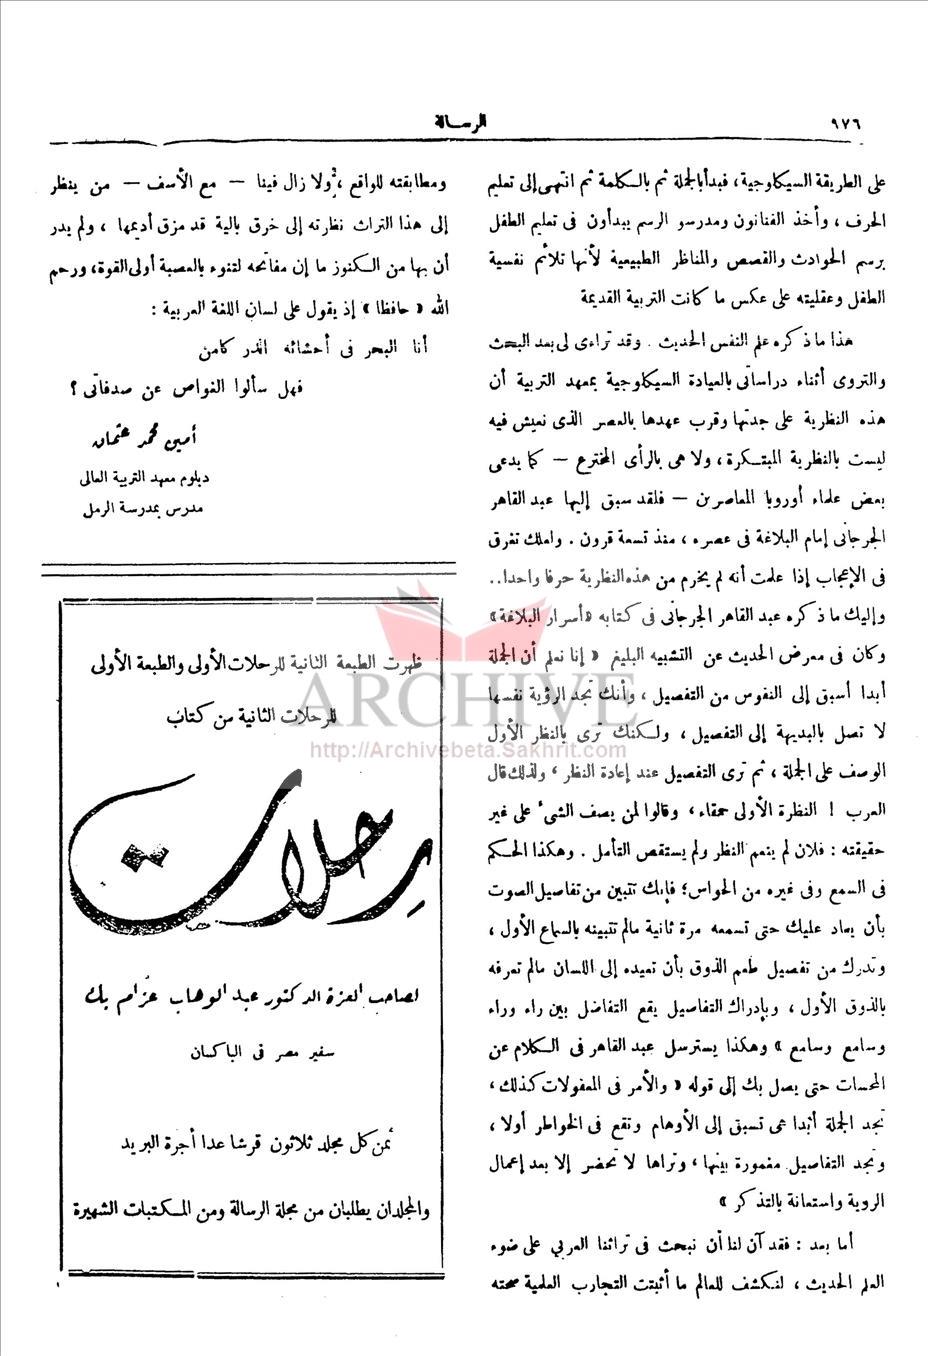 ٩٧٦
الرسالة
على الطريقة السيكلوجية، فبدأ بالجملة ثم بالكلمة ثم انتهى إلى تعليم
الحرف، وأخذ الفنانون ومدرسو الرسم يبدأون فى تعليم الطفل
برسم الحوادث والقصص والمناظر الطبيعية لأنها تلائم نفسية
الطفل وعقليته على عكس ما كانت التربية القديمة
هذا ما ذكره علم النفس الحديث. وقد تراءى لى بعد البحث
والتروى أثناء دراساتى بالعيادة السيكلوجية بمعهد التربية أن
هذه النظرية على جدتها وقرب عهدها بالعصر الذى نعيش فيه
ليست بالنظرية المبتكرة، ولا هى بالرأى المخترع – كما يدعى
بعض علماء أوروبا المعاصرين – فلقد سبق إليها عبد القاهر
الجرجانى إمام البلاغة فى عصره، منذ تسعة قرون. ولعلك تغرق
فى الإعجاب إذا علمت أنه لم يخرم من هذه النظرية حرفا واحدا..
وإليك ما ذكره عبد القاهر الجرجانى فى كتابه «أسرار البلاغة»
وكان فى معرض الحديث عن التشبيه البليغ «إنا نعلم أن الجملة
أبدا أسبق إلى النفوس من التفصيل، وأنك تجد الرؤية نفسها
لا تصل بالبديهة إلى التفصيل، ولكنك ترى بالنظر الأول
الوصف على الجملة، ثم ترى التفصيل عند إعادة النظر، ولذلك قال
العرب ! النظرة الأولى حمقاء، وقالوا لمن يصف الشىء على غير
حقيقته : فلان لم ينعم النظر ولم يستقص التأمل. وهكذا الحكم
فى السمع وفى غيره من الحواس؛ فإنك تتبين من تفاصيل الصوت
بأن يعاد عليك حتى تسمعه مرة ثانية مالم تتبينه بالسماع الأول،
وتدرك من تفصيل طعم الذوق بأن تعيده إلى اللسان مالم تعرفه
بالذوق الأول، وبإدراك التفاصيل يقع التفاضل بين راء وراء
وسامع وسامع» وهكذا يسترسل عبد القاهر فى الكلام عن
المحسات حتى يصل بك إلى قوله «والأمر فى المعقولات كذلك،
تجد الجملة أبدا هى تسبق إلى الأوهام وتقع فى الخواطر أولا،
وتجد التفاصيل مغمورة بينها، وتراها لا تحضر إلا بعد إعمال
الروية واستعانة بالتذكر»
أما بعد : فقد آن لنا أن نبحث فى تراثنا العربي على ضوء
العلم الحديث، لنكشف للعالم ما أثبتت التجارب العلمية صحته
ومطابقته للواقع، ولا زال فينا – مع الأسف – من ينظر
إلى هذا التراث نظرته إلى خرق بالية قد مزق أديمها، ولم يدر
أن بها من الكنوز ما إن مفاتحه لتنوء بالعصبة أولى القوة، ورحم
الله «حافظا» إذ يقول على لسان اللغة العربية :
أنا البحر فى أحشائه الدر كامن
فهل سألوا الغواص عن صدفاتى ؟
أمين محمد عثمان
دبلوم معهد التربية العالى
مدرس بمدرسة الرمل
ظهرت الطبعة الثانية للرحلات الأولى والطبعة الأولى
للرحلات الثانية من كتاب
رحلات
لصاحب العزة الدكتور عبد الوهاب عزام بك
سفير مصر فى الباكستان
ثمن كل مجلد ثلاثون قرشا عدا أجرة البريد
والمجلدان يطلبان من مجلة الرسالة ومن المكتبات الشهيرة
ARCHIVE
http://Archivebeta.Sakhrit.com